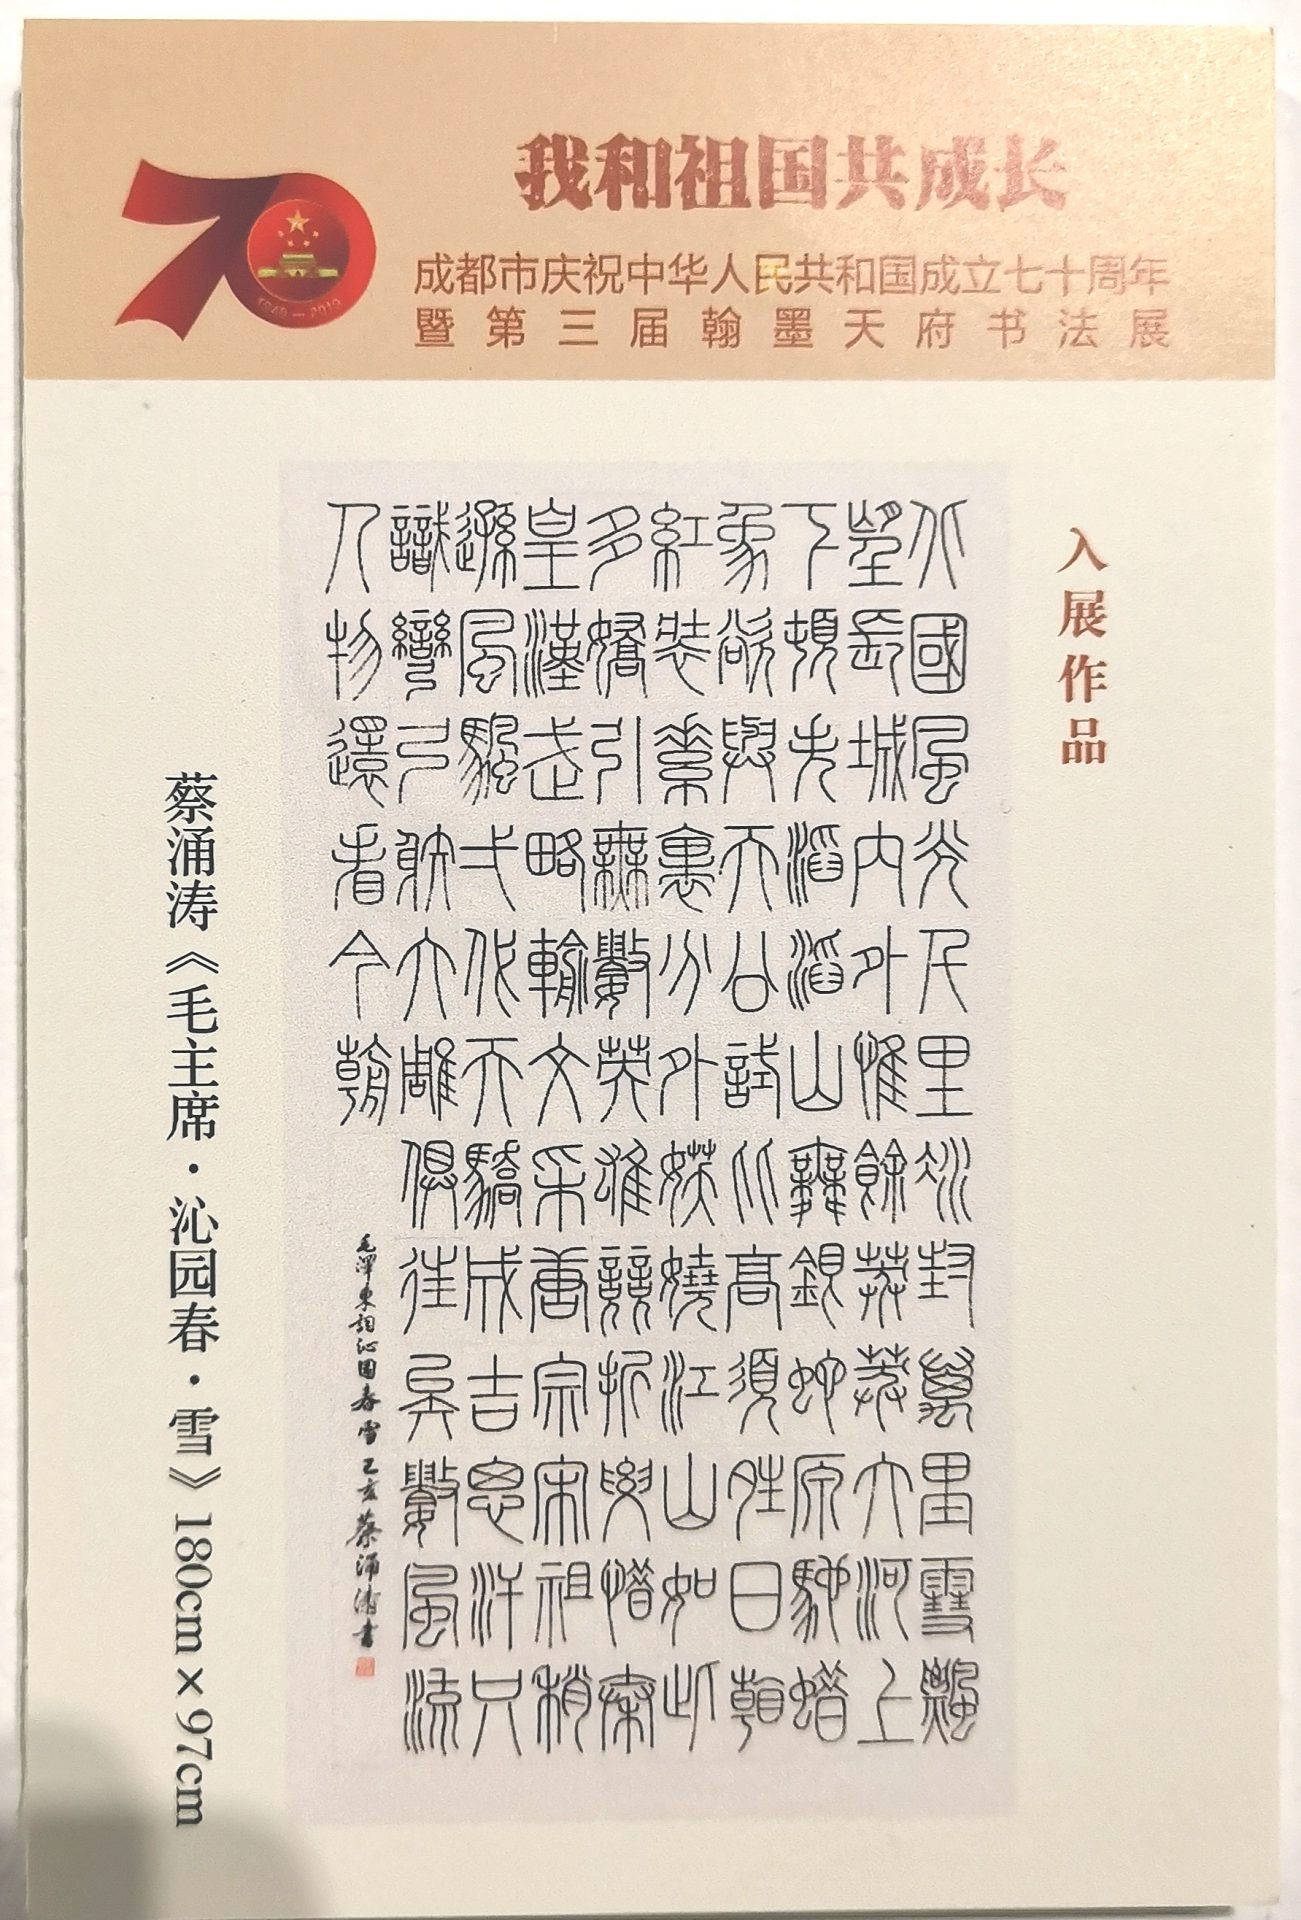 我和祖国共成长
成都市庆祝中华人民共和国成立七十周年
暨第三届翰墨天府书法展
70
1949—2019
入展作品
北國風光千里冰封萬里雪飄
望長城內外惟餘莽莽大河上
下頓失滔滔山舞銀蛇原馳蠟
象欲與天公試比高須晴日看
紅裝素裹分外妖嬈江山如此
多嬌引無數英雄競折腰惜秦
皇漢武略輸文采唐宗宋祖稍
遜風騷弌代天驕成吉思汗只
識彎弓射大雕俱往矣數風流
人物還看今朝
毛澤東詞沁園春雪己亥蔡涌濤書
蔡涌涛《毛主席·沁园春·雪》180cm×97cm